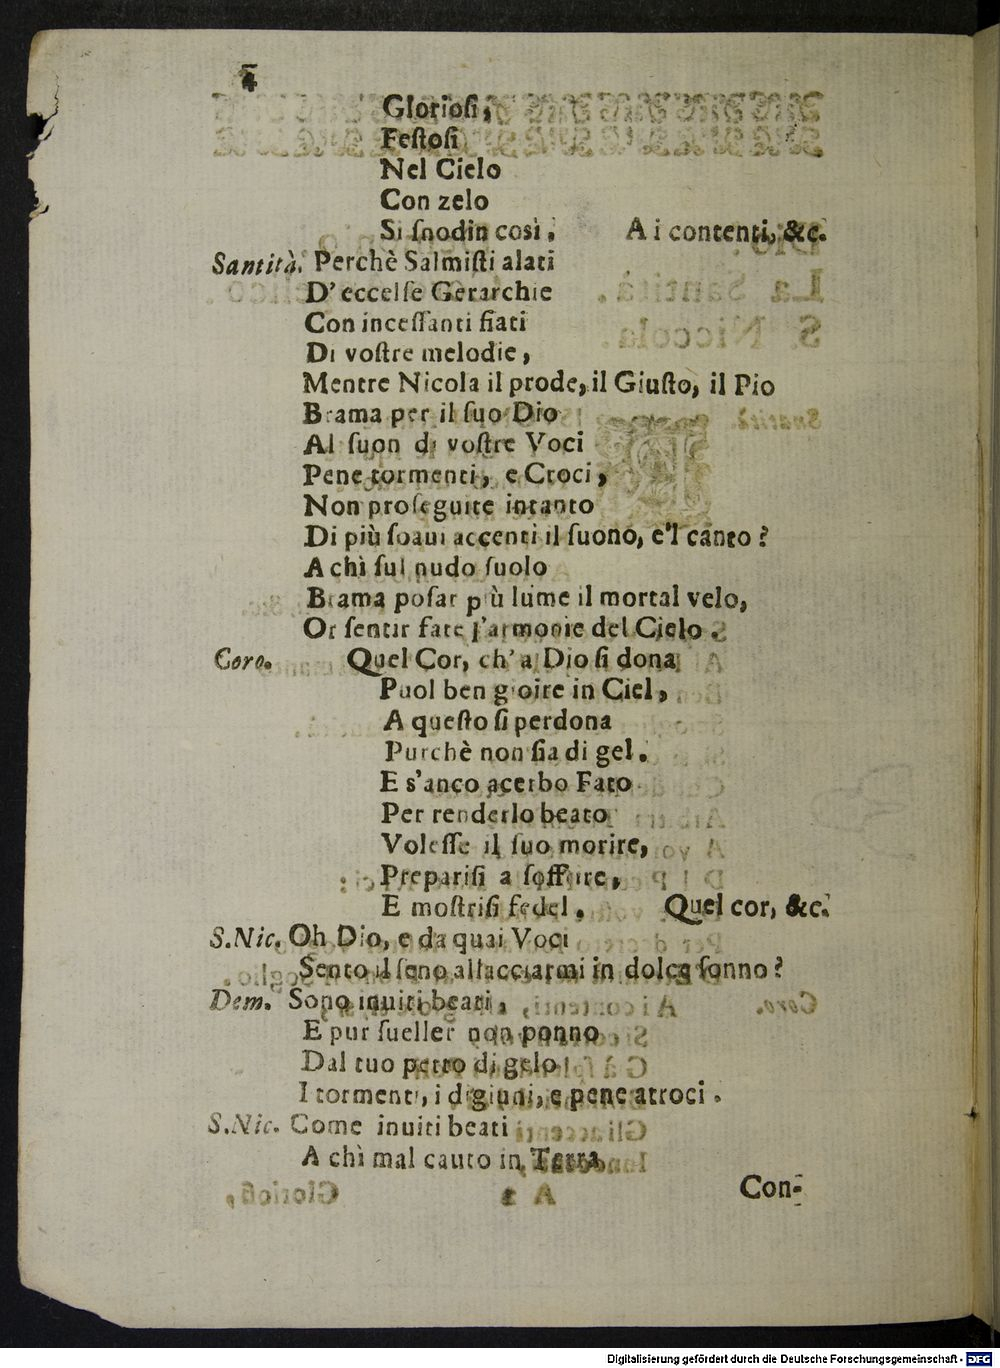 4
Gloriosi,
Festosi
Nel Cielo
Con zelo
Si snodin così. A i contenti, &c.
Santità. Perchè Salmisti alati
D'eccelse Gerarchie
Con incessanti fiati
Di vostre melodie,
Mentre Nicola il prode, il Giusto, il Pio
Brama per il suo Dio
Al suon di vostre Voci
Pene tormenti, e Croci,
Non proseguite intanto
Di più soaui accenti il suono, e'l canto?
A chì sul nudo suolo
Brama posar più lume il mortal velo,
Or sentir fate l'armonie del Cielo.
Coro. Quel Cor, ch'a Dio si dona
Puol ben gioire in Ciel,
A questo si perdona
Purchè non sia di gel.
E s'anco acerbo Fato
Per renderlo beato
Volesse il suo morire,
Preparisi a soffrire,
E mostrisi fedel. Quel cor, &c.
S.Nic. Oh Dio, e da quai Voci
Sento il seno allacciarmi in dolce sonno?
Dem. Sono inuiti beati,
E pur sueller non ponno
Dal tuo petto di gelo
I tormenti, i digiuni, e pene atroci.
S.Nic. Come inuiti beati
A chì mal cauto in Terra
Con-
Digitalisierung gefördert durch die Deutsche Forschungsgemeinschaft - DFG